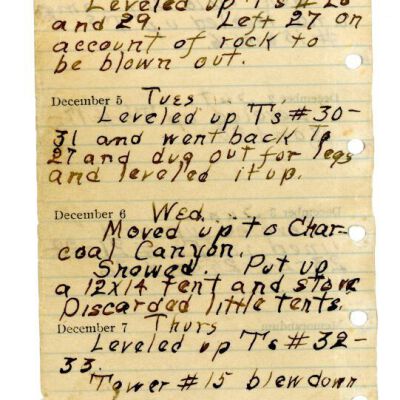 Leveled up T's # 28
and 29. Left 27 on
account of rock to
be blown out.
December 5 Tues
Leveled up T's # 30-
31 and went back to
27 and dug out for legs
and leveled it up.
December 6 Wed.
Moved up to Char-
coal Canyon.
Snowed. Put up
a 12x14 tent and stove
Discarded little tents.
December 7 Thurs
Leveled up T's # 32-
33.
Tower # 15 blewdown